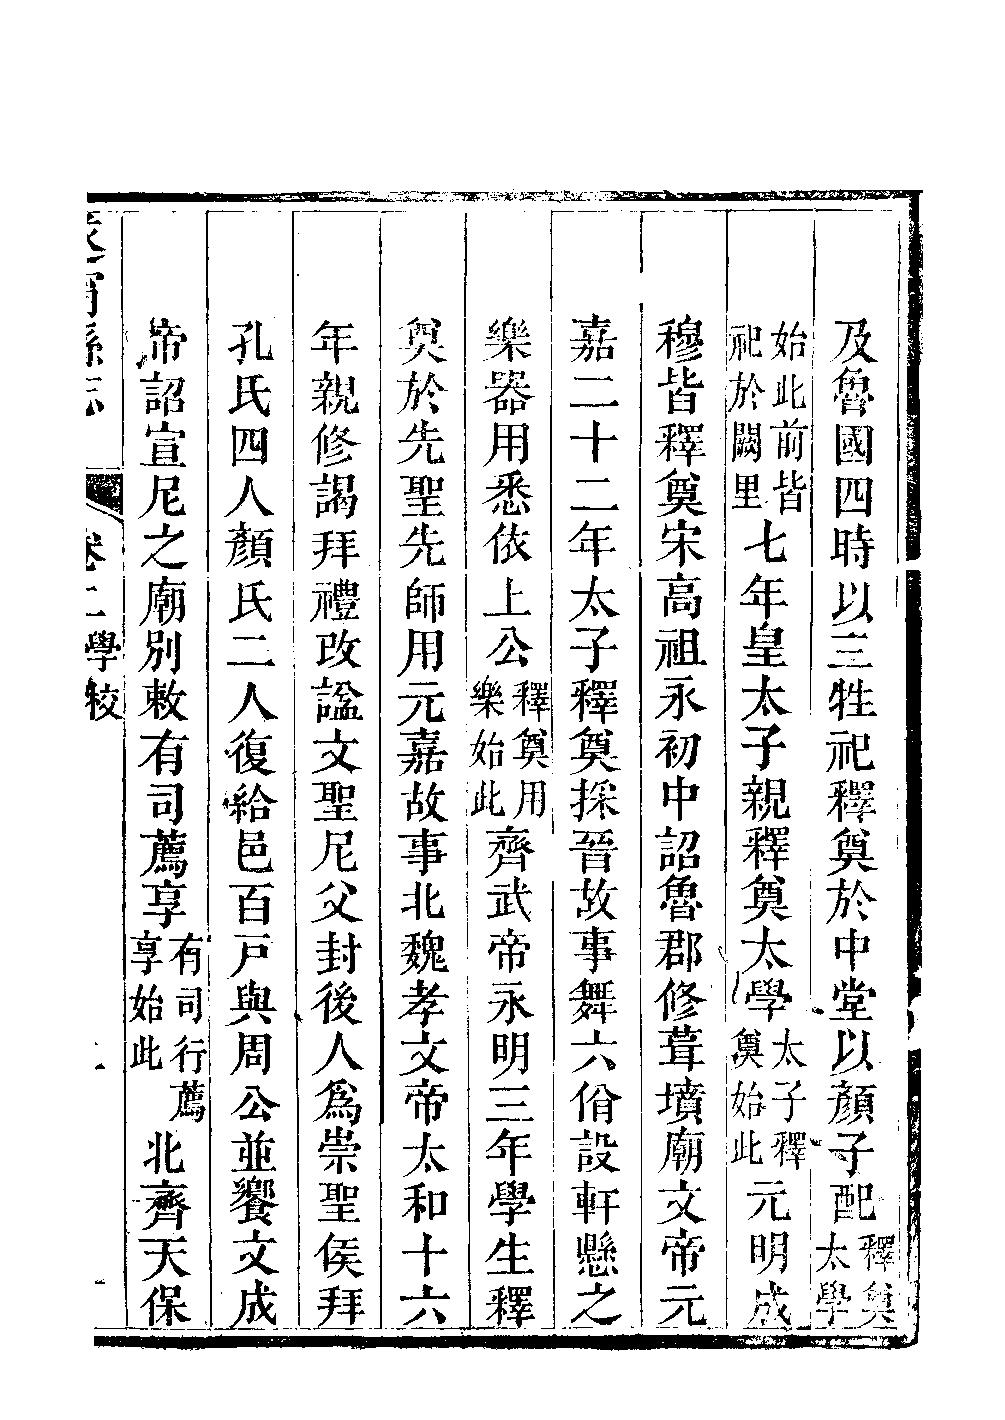 及魯國四時以三牲祀釋奠於中堂以顏子配釋奠太學
始此前皆祀於闕里七年皇太子親釋奠太學太子釋奠始此元明成
穆皆釋奠宋高祖永初中詔魯郡修葺墳廟文帝元
嘉二十二年太子釋奠採晉故事舞六佾設軒懸之
樂器用悉依上公釋奠用樂始此齊武帝永明三年學生釋
奠於先聖先師用元嘉故事北魏孝文帝太和十六
年親修謁拜禮改諡文聖尼父封後人為崇聖侯拜
孔氏四人顏氏二人復給邑百戶與周公並饗文成
帝詔宣尼之廟別敕有司薦享有司行薦享始此北齊天保
縣志 卷二學校